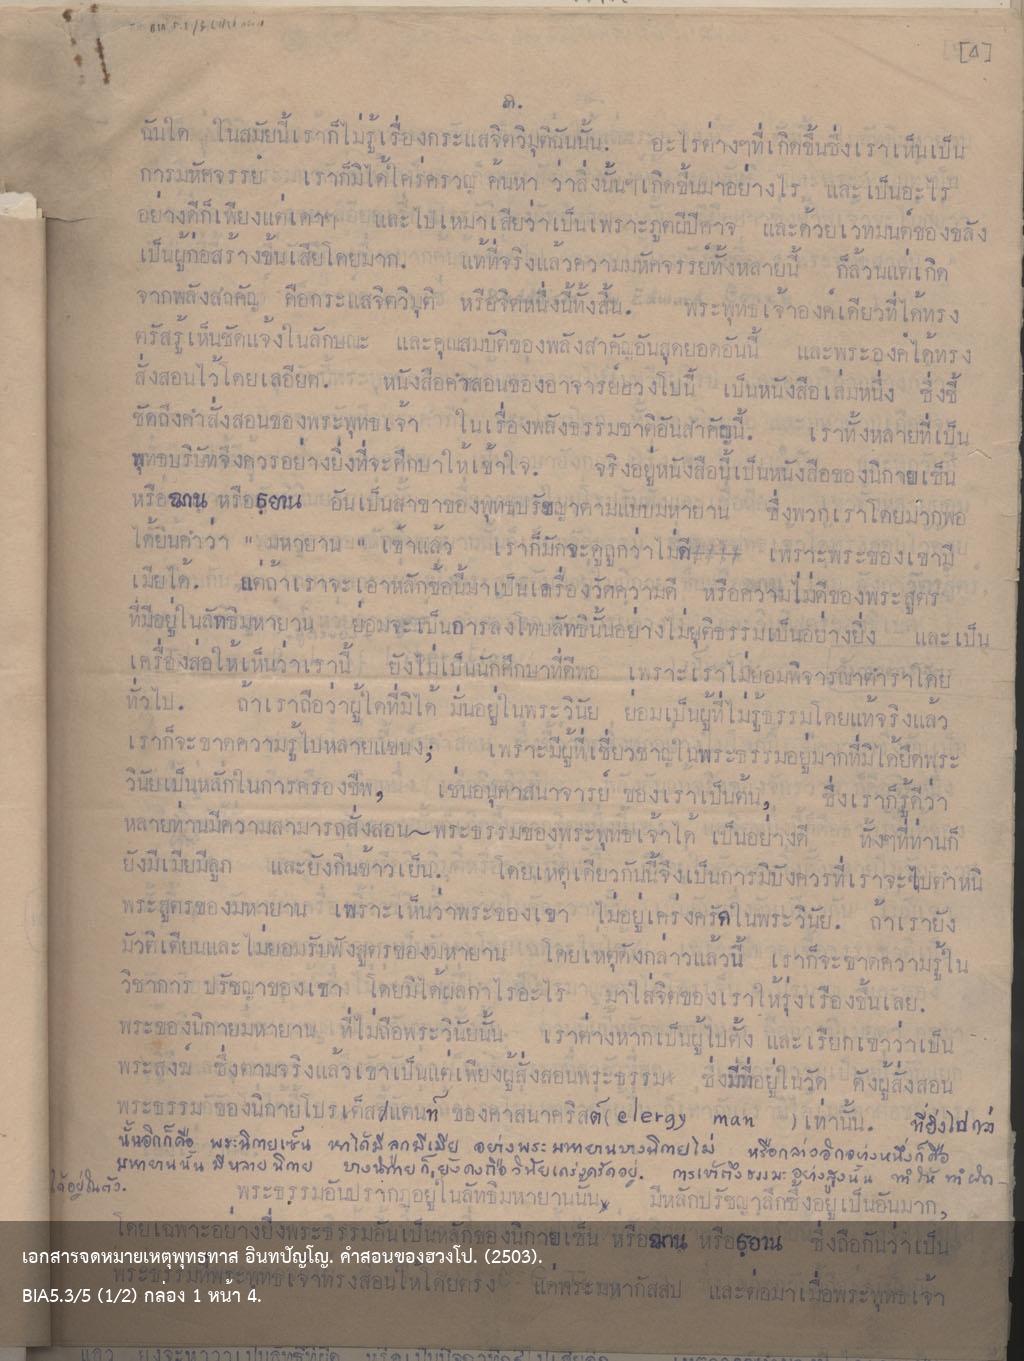 [4]
๓.
ฉันใด ในสมัยนี้เราก็ไม่รู้เรื่องกระแสจิตวิมุติฉันนั้น. อะไรต่างๆที่เกิดขึ้นซึ่งเราเห็นเป็น
การมหัศจรรย์ เราก็มิได้ใคร่ครวญ ค้นหา ว่าสิ่งนั้นๆเกิดขึ้นมาอย่างไร และเป็นอะไร
อย่างดีก็เพียงแต่เดาๆ และไปเหมาเสียว่าเป็นเพราะภูตผีปีศาจ และด้วยเวทมนต์ของขลัง
เป็นผู้ก่อสร้างขึ้นเสียโดยมาก. แท้ที่จริงแล้วความมหัศจรรย์ทั้งหลายนี้ ก็ล้วนแต่เกิด
จากพลังสำคัญ คือกระแสจิตวิมุติ หรือจิตหนึ่งนี้ทั้งสิ้น. พระพุทธเจ้าองค์เดียวที่ได้ทรง
ตรัสรู้เห็นชัดแจ้งในลักษณะ และคุณสมบัติของพลังสำคัญอันสุดยอดอันนี้ และพระองค์ได้ทรง
สั่งสอนไว้โดยเลอียด. หนังสือคำสอนของอาจารย์ฮวงโปนี้ เป็นหนังสือเล่มหนึ่ง ซึ่งชี้
ชัดถึงคำสั่งสอนของพระพุทธเจ้า ในเรื่องพลังธรรมชาติอันสำคัญนี้. เราทั้งหลายที่เป็น
พุทธบริษัทจึงควรอย่างยิ่งที่จะศึกษาให้เข้าใจ. จริงอยู่หนังสือนี้เป็นหนังสือของนิกายเซ็น
หรือฌาน หรือธฺยาน อันเป็นสาขาของพุทธปรัชญาตามแบบมหายาน ซึ่งพวกเราโดยมากพอ
ได้ยินคำว่า " มหายาน " เข้าแล้ว เราก็มักจะดูถูกว่าไม่ดี เพราะพระของเขามี
เมียได้. แต่ถ้าเราจะเอาหลักข้อนี้มาเป็นเครื่องวัดความดี หรือความไม่ดีของพระสูตร
ที่มีอยู่ในลัทธิมหายาน ย่อมจะเป็นการลงโทษลัทธินั้นอย่างไม่ยุติธรรมเป็นอย่างยิ่ง และเป็น
เครื่องส่อให้เห็นว่าเรานี้ ยังไม่เป็นนักศึกษาที่ดีพอ เพราะเราไม่ยอมพิจารณาตำราโดย
ทั่วไป. ถ้าเราถือว่าผู้ใดที่มิได้ มั่นอยู่ในพระวินัย ย่อมเป็นผู้ที่ไม่รู้ธรรมโดยแท้จริงแล้ว
เราก็จะขาดความรู้ไปหลายแขนง; เพราะมีผู้ที่เชี่ยวชาญในพระธรรมอยู่มากที่มิได้ยึดพระ
วินัยเป็นหลักในการครองชีพ, เช่นอนุศาสนาจารย์ ของเราเป็นต้น, ซึ่งเราก็รู้ดีว่า
หลายท่านมีความสามารถสั่งสอน พระธรรมของพระพุทธเจ้าได้ เป็นอย่างดี ทั้งๆที่ท่านก็
ยังมีเมียมีลูก และยังกินข้าวเย็น. โดยเหตุเดียวกันนี้จึงเป็นการมิบังควรที่เราจะไปตำหนิ
พระสูตรของมหายาน เพราะเห็นว่าพระของเขา ไม่อยู่เคร่งครัดในพระวินัย. ถ้าเรายัง
มัวติเตียนและไม่ยอมรับฟังสูตรของมหายาน โดยเหตุดังกล่าวแล้วนี้ เราก็จะขาดความรู้ใน
วิชาการ ปรัชญาของเขา โดยมิได้ผลกำไรอะไร มาใส่จิตของเราให้รุ่งเรืองขึ้นเลย.
พระของนิกายมหายาน ที่ไม่ถือพระวินัยนั้น เราต่างหากเป็นผู้ไปตั้ง และเรียกเขาว่าเป็น
พระสงฆ์ ซึ่งตามจริงแล้วเขาเป็นแต่เพียงผู้สั่งสอนพระธรรม ซึ่งมีที่อยู่ในวัด ดังผู้สั่งสอน
พระธรรมของนิกายโปรเต็สแตนท์ ของศาสนาคริสต์(clergy man )เท่านั้น. ที่ยิ่งไปกว่า
นั้นอีกก็คือ พระนิกายเซ็น หาได้มีลูกมีเมีย อย่างพระมหายานบางนิกายไม่ หรือกล่าวอีกอย่างหนึ่งก็คือ
มหายานนั้น มีหลายนิกาย บางนิกายก็ยังคงถือวินัยเคร่งครัดอยู่. การเข้าถึงธรรมะอย่างสูงนั้น ทำให้
ได้อยู่ในตัว.
พระธรรมอันปรากฏอยู่ในลัทธิมหายานนั้น มีหลักปรัชญาลึกซึ้งอยู่เป็นอันมาก,
โดยเฉพาะอย่างยิ่งพระธรรมอันเป็นหลักของนิกายเซ็น หรือฌาน หรือธฺยาน ซึ่งถือกันว่าเป็น
พระธรรมที่พระพุทธเจ้าทรงสอนให้โดยตรง แด่พระมหากัสสป และต่อมาเมื่อพระพุทธเจ้า
เอกสารจดหมายเหตุพุทธทาส อินทปัญโญ. คำสอนของฮวงโป. (2503).
BIA5.3/5 (1/2) กล่อง 1 หน้า 4.